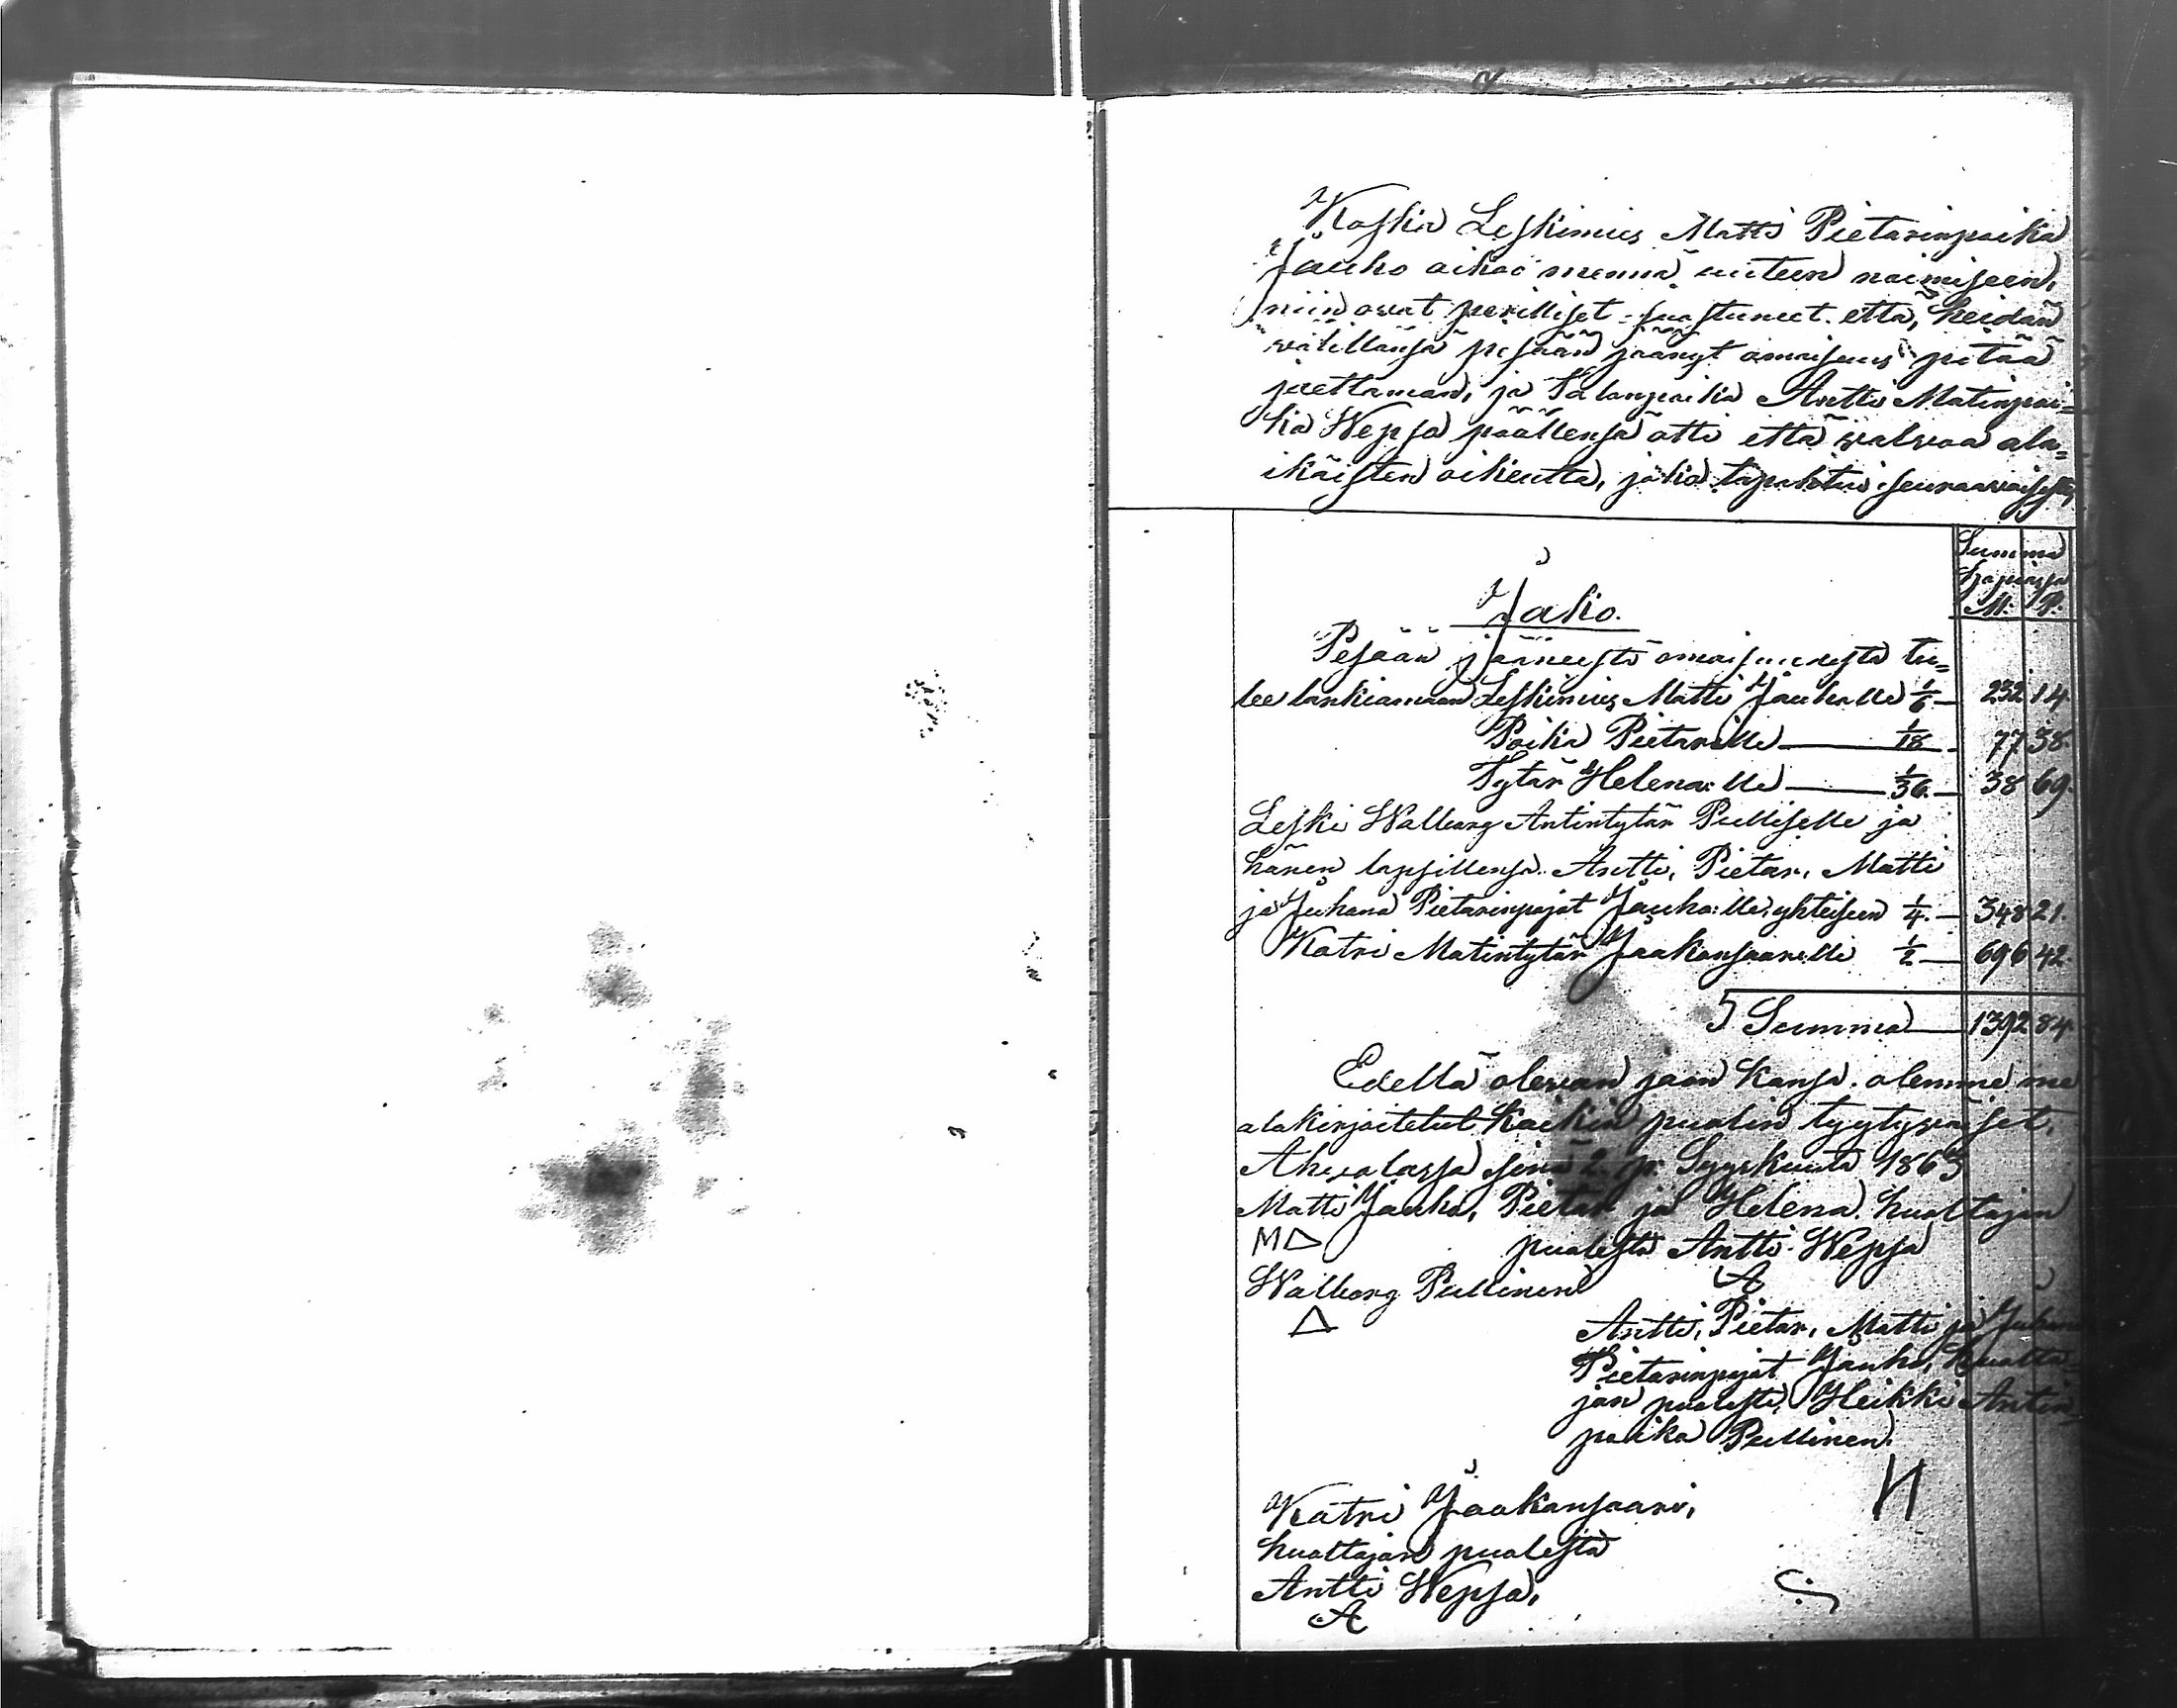 Koska Leskimies Matti Pietarinpoika
Jauho aikoo mennä uuteen naimiseen,
niin ovat perilliset suostuneet että, heidän
välillänsä pesään jäänyt omaisuus pitää
jaettaman, ja Talonpoika Antti Matinpoi=
ka Wepsä päällensä otti että valvoa ala=
ikäisten oikeutta, joka tapahtui seuraavaisesti,
Summa
Hopiassa
M. P.
Jako.
Pesään jääneestä omaisuudesta tu=
lee lankiamaan Leskimies Matti Jauholle 1/6 — 232 14.
Poika Pietarille — 1/18 — 77 38.
Tytär Helena:lle — 1/36. — 38 69.
Leski Walborg Antintytär Pulliselle ja
hänen lapsillensa Antti, Pietar, Matti
ja Juhana Pietarinpojat Jauho:lle, yhteiseen 1/4. — 348 21.
Katri Matintytär Jaakonsaarelle 1/2 — 696 42.
Summa — 1392 84.
Edellä olevan jaon kansa olemme me
alakirjoitetut kaikin puolin tyytyväiset,
Ahvolassa sinä 2. p. Syyskuuta 1863
Matti Jauho, Pietar ja Helena huoltajan
M△ puolesta Antti Wepsä
Walborg Pullinen A
△
Antti, Pietar, Matti ja Juhana
Pietarinpojat Jauho, huolta=
jan puolesta, Heikki Antin
poika Pullinen.
Katri Jaakonsaari,
huoltajan puolesta
Antti Wepsä,
A